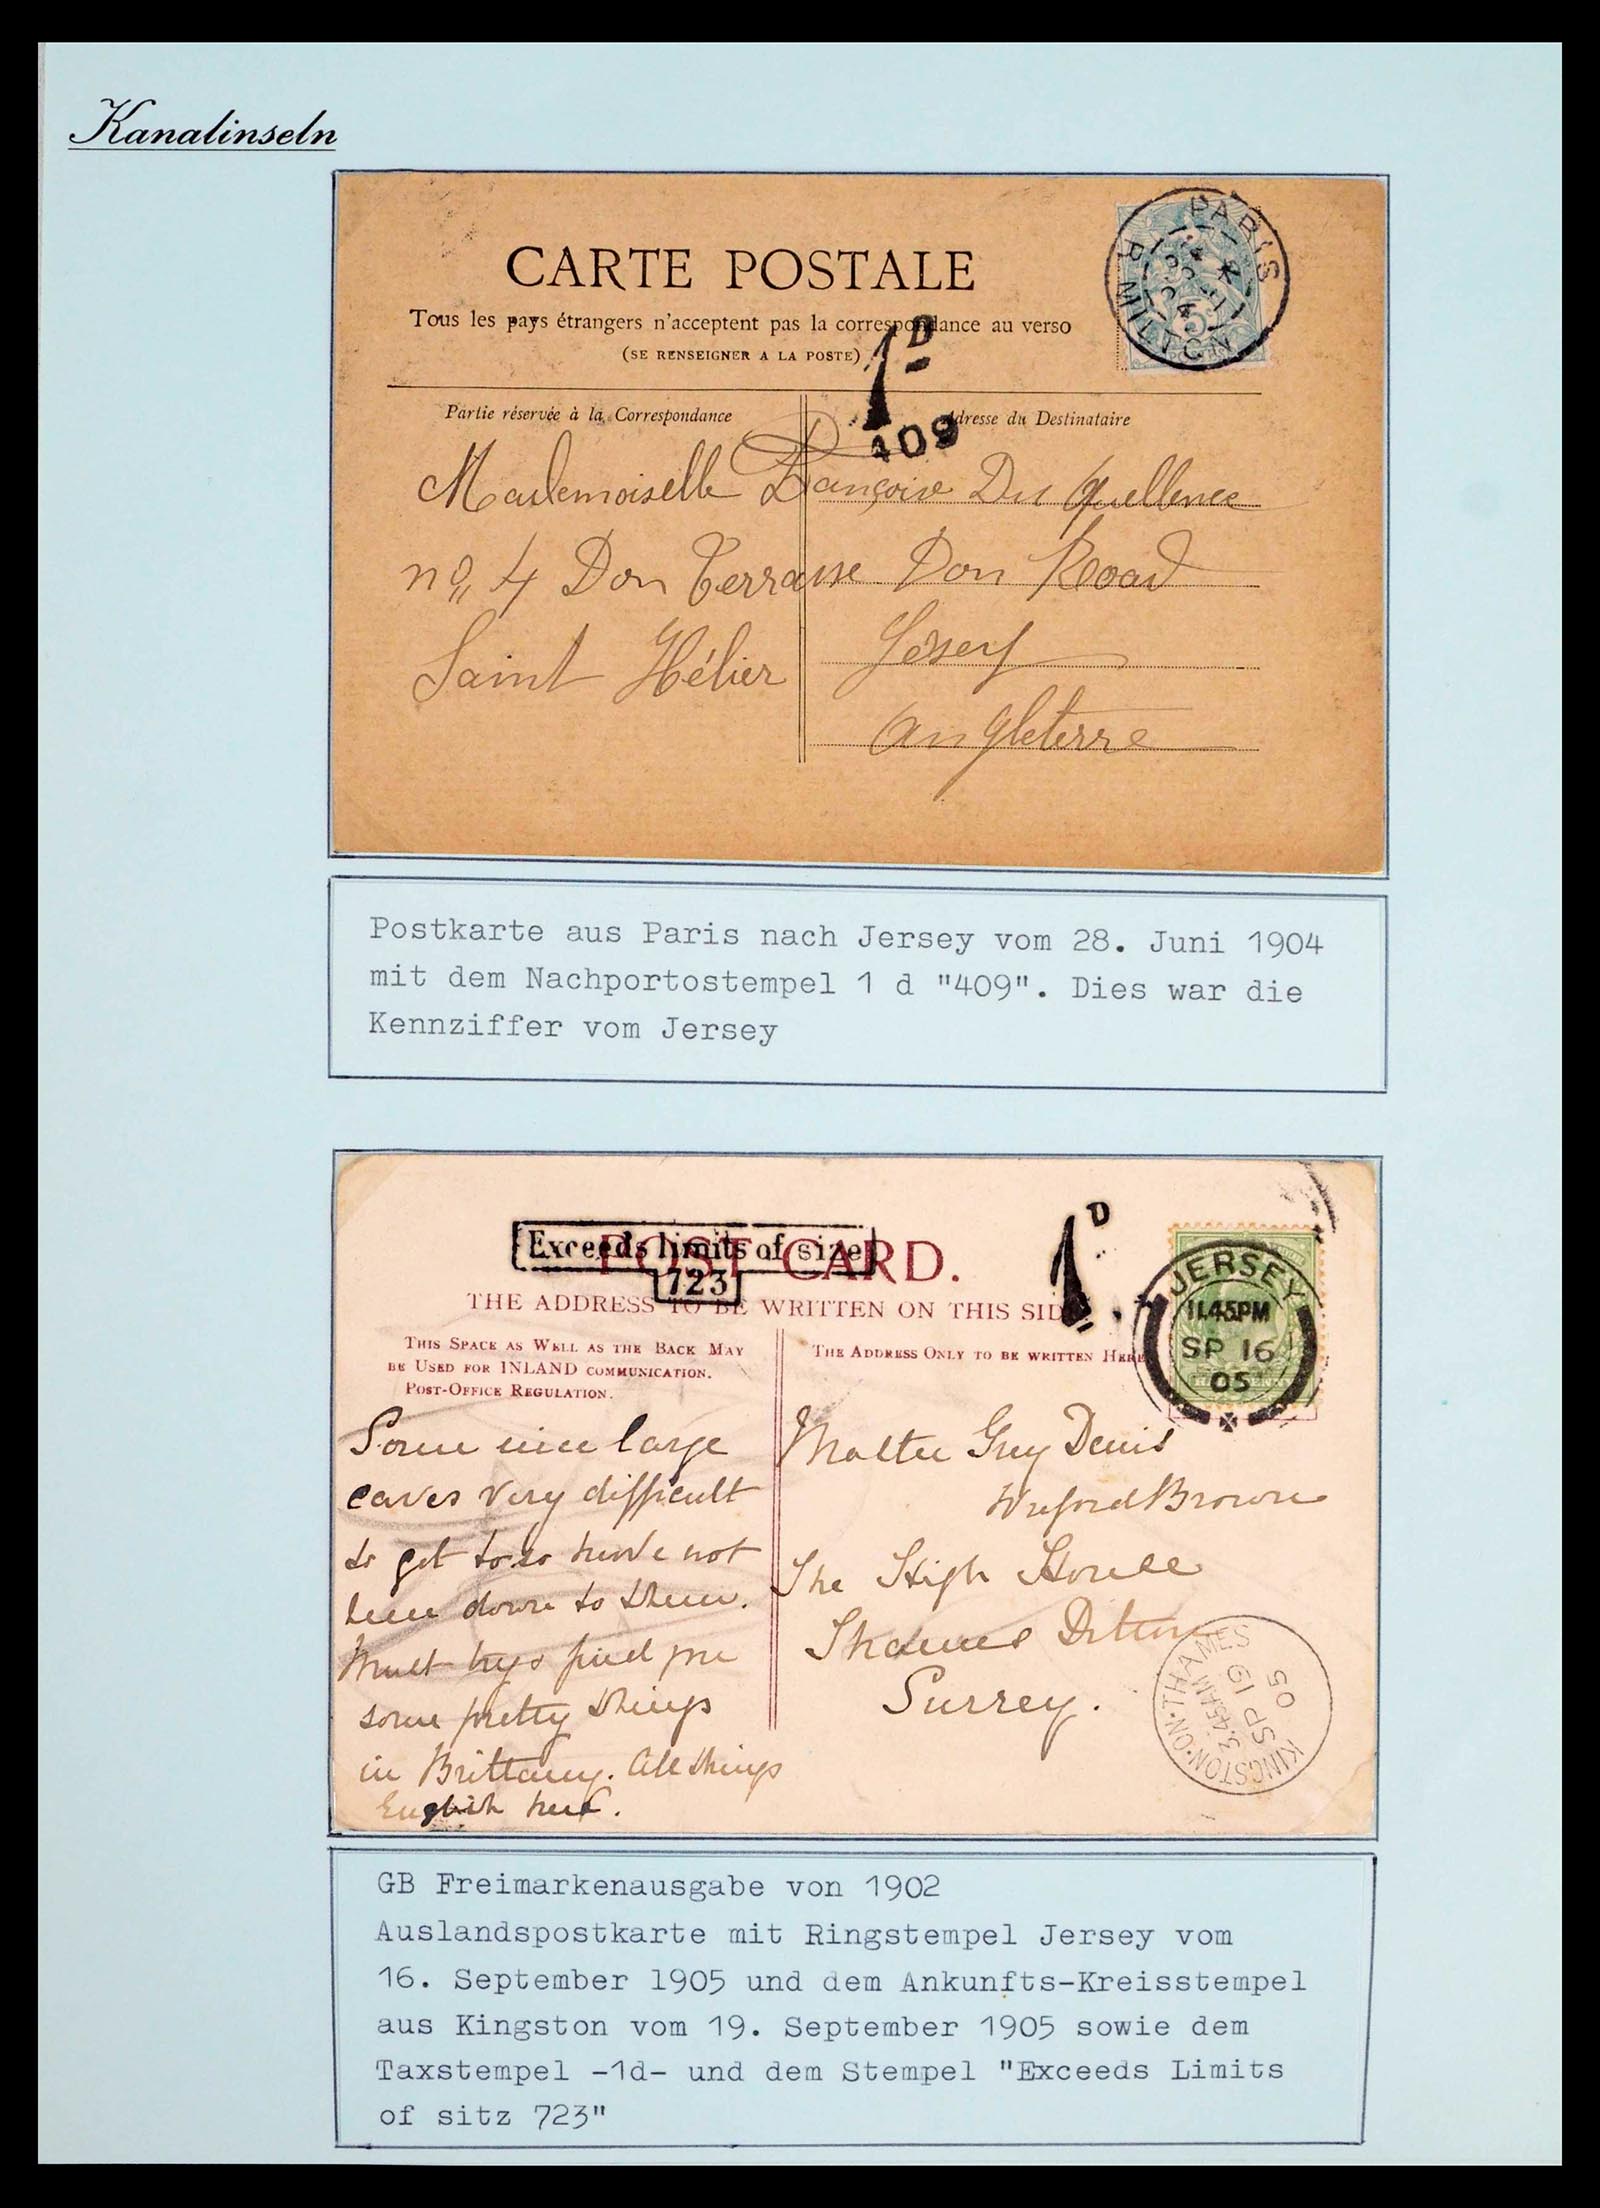 Kanalinseln
CARTE POSTALE
Tous les pays étrangers n'acceptent pas la correspondance au verso
(SE RENSEIGNER A LA POSTE)
PARIS
R MILTON
5
1D
409
Partie réservée à la Correspondance
Adresse du Destinataire
Mademoiselle Françoise Du Quellenec
no 4 Don Terrasse Don Road
Saint Hélier Jersey
Angleterre
Postkarte aus Paris nach Jersey vom 28. Juni 1904
mit dem Nachportostempel 1 d "409". Dies war die
Kennziffer vom Jersey
Exceeds limits of size
723
1D
POST CARD.
THE ADDRESS TO BE WRITTEN ON THIS SIDE
JERSEY
11.45PM
SP 16
05
THIS SPACE AS WELL AS THE BACK MAY
BE USED FOR INLAND COMMUNICATION.
POST-OFFICE REGULATION.
THE ADDRESS ONLY TO BE WRITTEN HERE
Some nice large
caves very difficult
to get to so have not
been down to them.
Must try & find you
some pretty things
in Brittany. All things
English here.
Master Guy Denis
Wreford Brown
The High House
Thames Ditton
Surrey.
KINGSTON-ON-THAMES
3.45AM
SP 19
05
GB Freimarkenausgabe von 1902
Auslandspostkarte mit Ringstempel Jersey vom
16. September 1905 und dem Ankunfts-Kreisstempel
aus Kingston vom 19. September 1905 sowie dem
Taxstempel -1d- und dem Stempel "Exceeds Limits
of sitz 723"